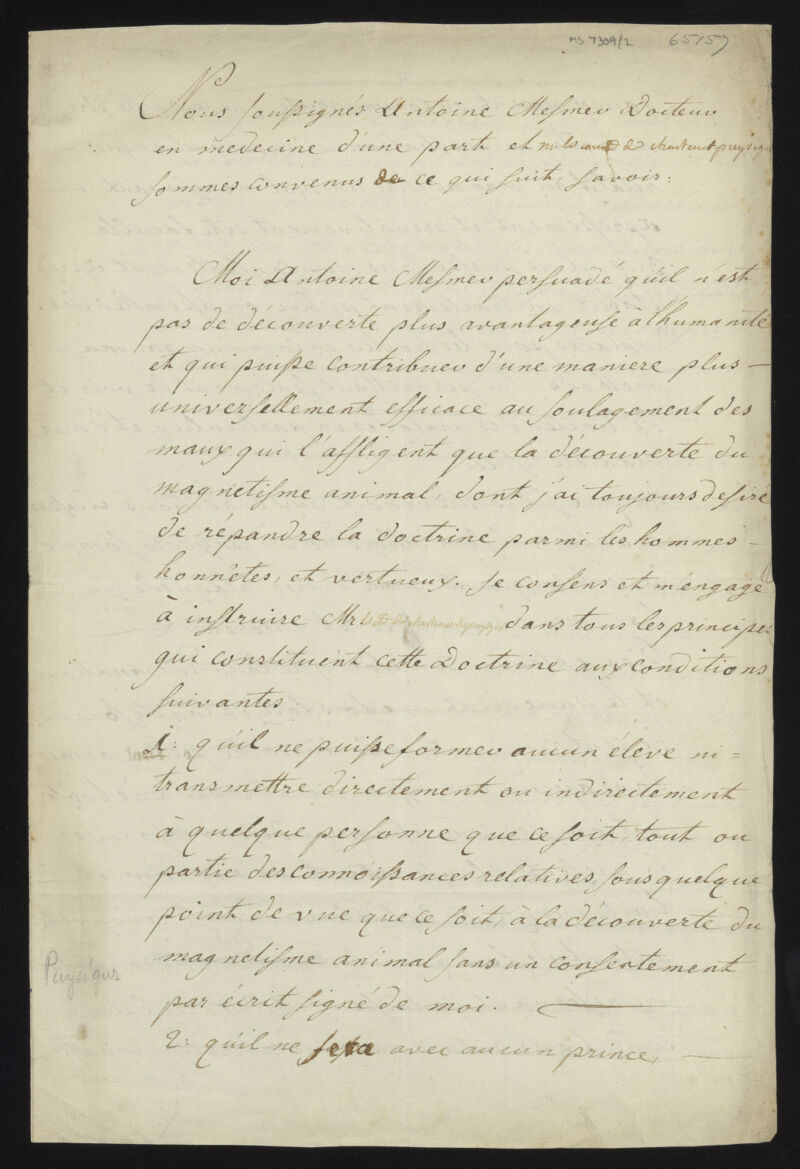 MS 7309/2 65157
Nous soussignés Antoine Mesmer Docteur
en medecine d'une part et m. le de chastenet puysegur
sommes convenus de ce qui suit, savoir:
Moi Antoine Mesmer persuadé qu'il n'est
pas de découverte plus avantageuse à l'humanité
et qui puisse contribuer d'une maniere plus —
universellement efficace au soulagement des
maux qui l'affligent que la découverte du
magnetisme animal, dont j'ai toujours desiré
de répandre la doctrine parmi les hommes —
honnêtes, et vertueux. Je consens et m'engage
à instruire Mr. de chastenet puysegur dans tous les principes
qui constituent cette Doctrine aux conditions
suivantes
1: qu'il ne puisse former aucun éleve ni =
transmettre directement ou indirectement
à quelque personne que ce soit, tout ou
partie des connoissances relatives, sous quelque
point de vue que ce soit, à la découverte du
magnetisme animal sans un consentement
par écrit signé de moi.
Puységur
2: qu'il ne fera avec aucun prince, —